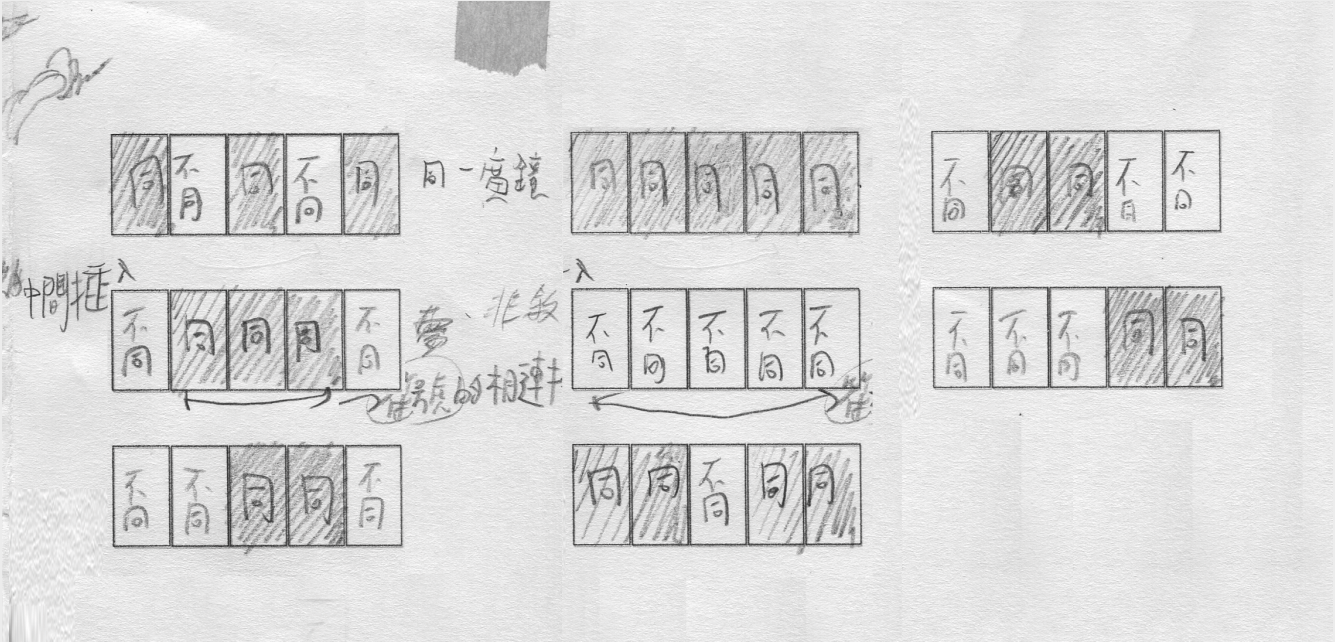 同 不同 同 不同 同
同一廣鏡
同 同 同 同 同
不同 同 同 不同 不同
入
中間框
不同 同 同 同 不同
夢、非敘
號的相連
一入
不同 不同 不同 不同 不同
不同 不同 不同 同 同
不同 不同 同 同 不同
同 同 不同 同 同